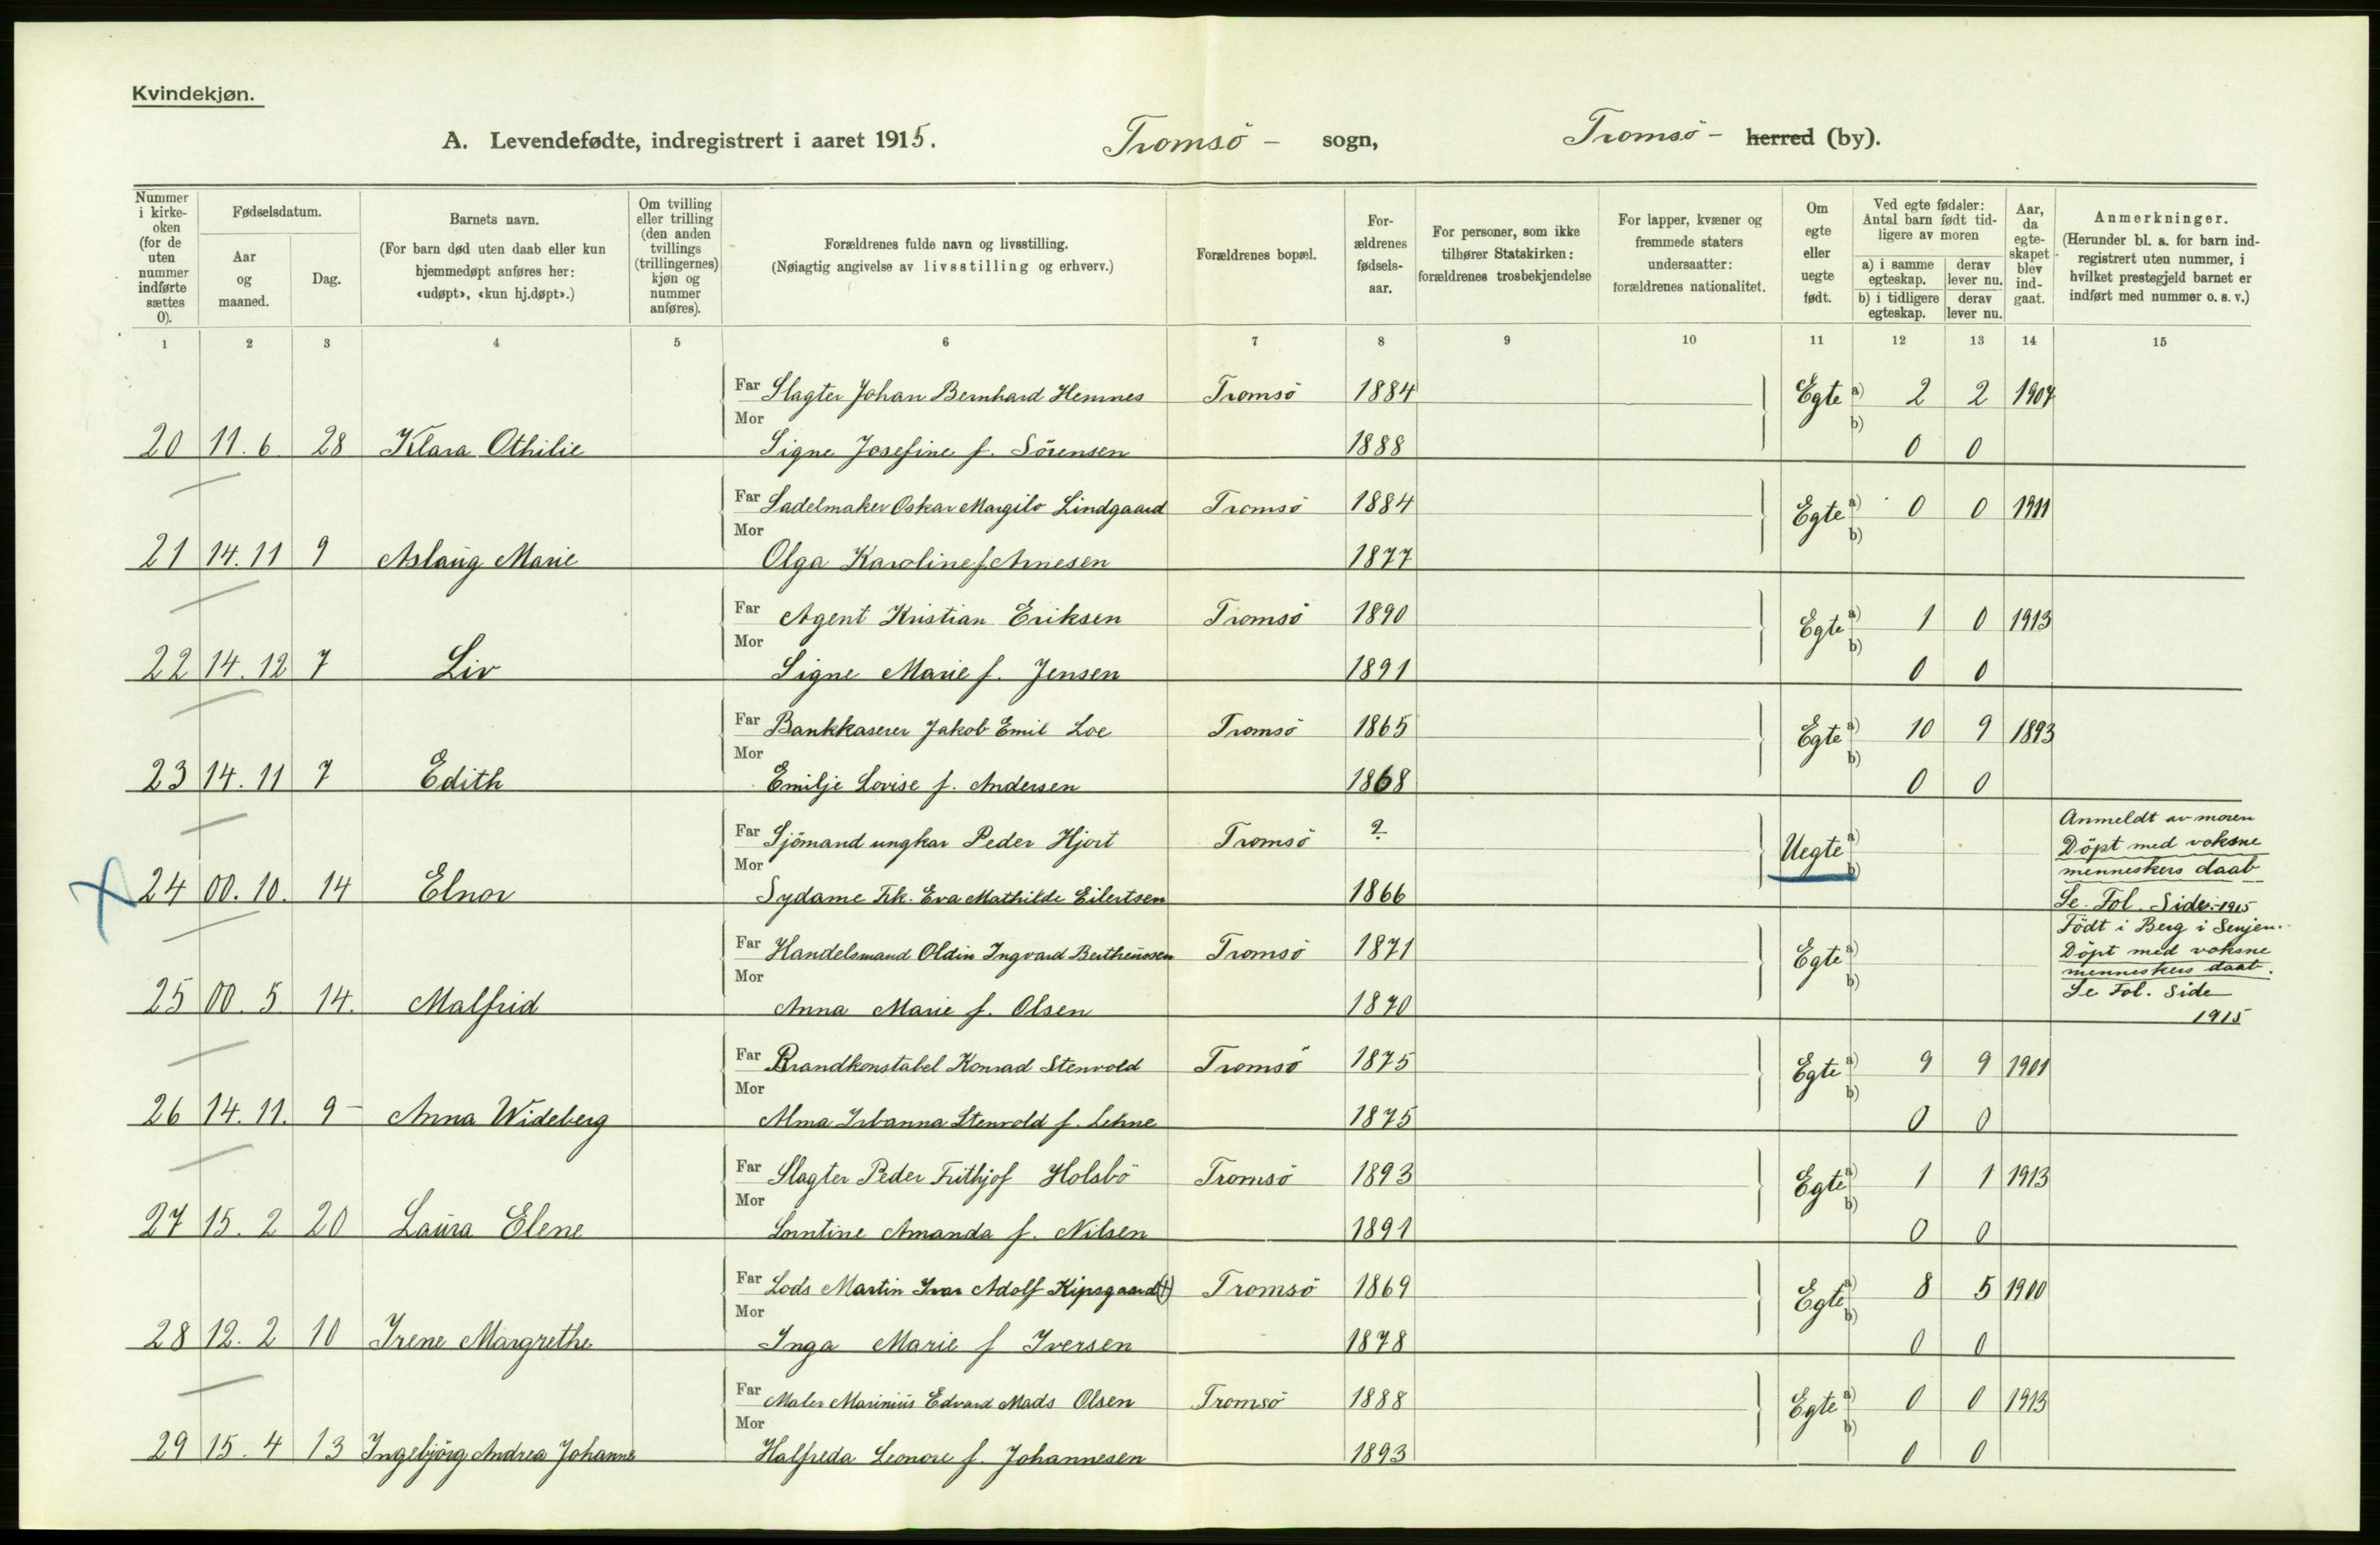 Kvindekjøn.
A. Levendefødte, indregistrert i aaret 1915. Tromsö - sogn, Tromsö - herred (by).
Nummer i kirke- oken (for de uten nummer indførte sættes 0).
Fødselsdatum.
Aar og maaned.
Dag.
Barnets navn.
(For barn død uten daab eller kun hjemmedøpt anføres her: «udøpt», «kun hj.døpt».)
Om tvilling eller trilling (den anden tvillings (trillingernes) kjøn og nummer anføres).
Forældrenes fulde navn og livsstilling.
(Nøiagtig angivelse av livsstilling og erhverv.)
Forældrenes bopæl.
For- ældrenes fødsels- aar.
For personer, som ikke tilhører Statskirken: forældrenes trosbekjendelse
For lapper, kvæner og fremmede staters undersaatter: forældrenes nationalitet.
Om egte eller uegte født.
Ved egte fødsler: Antal barn født tid- ligere av moren
a) i samme egteskap. derav lever nu.
b) i tidligere egteskap. derav lever nu.
Aar, da egte- skapet blev ind- gaat.
Anmerkninger.
(Herunder bl. a. for barn ind- registrert uten nummer, i hvilket prestegjeld barnet er indført med nummer o. s. v.)
1 2 3 4 5 6 7 8 9 10 11 12 13 14 15
Far Slagter Johan Bernhard Hemnes Tromsö 1884 Egte a) 2 2 1907
Mor b)
20 11. 6 28 Klara Othilie Signe Josefine f. Sörensen 1888 0 0
Far Sadelmaker Oskar Margilo Lindgaard Tromsö 1884 Egte a) 0 0 1911
Mor b)
21 14. 11 9 Aslaug Marie Olga Karoline f. Arnesen 1877
Far Agent Kristian Eriksen Tromsö 1890 Egte a) 1 0 1913
Mor b)
22 14. 12 7 Liv Signe Marie f. Jensen 1891 0 0
Far Bankkaserer Jakob Emil Loe Tromsö 1865 Egte a) 10 9 1893
Mor b)
23 14. 11 7 Edith Emilje Lovise f. Andersen 1868 0 0
Far Sjömand ungkar Peder Hjort Tromsö ? Uegte a) b)
Mor
24 00. 10. 14 Elnor Sydame Frk. Eva Mathilde Eilertsen 1866
Anmeldt av moren
Döpt med voksne
menneskers daab
Se. Fol. Side. 1915
Far Handelsmand Oldin Ingvard Bertheussen Tromsö 1871 Egte a) b)
Mor
25 00. 5 14. Malfrid Anna Marie f. Olsen 1870
Födt i Berg i Senjen.
Döpt med voksne
menneskers daab.
Se Fol. Side
1915
Far Brandkonstabel Konrad Stenvold Tromsö 1875 Egte a) 9 9 1901
Mor b)
26 14. 11. 9 - Anna Wideberg Alma Stenvold f. Lehne 1875 0 0
Far Slagter Peder Frithjof Holsbö Tromsö 1893 Egte a) 1 1 1913
Mor b)
27 15. 2 20 Laura Elene Amanda f. Nilsen 1891 0 0
Far Lods Martin Ivar Adolf Kipsgaard (†) Tromsö 1869 Egte a) 8 5 1900
Mor b)
28 12. 2 10 Irene Margrethe Inga Marie f Iversen 1878 0 0
Far Maler Marinius Edvard Mads Olsen Tromsö 1888 Egte a) 0 0 1913
Mor b)
29 15. 4 13 Ingebjörg Andrea Johanne Halfreda Leonore f. Johannesen 1893 0 0